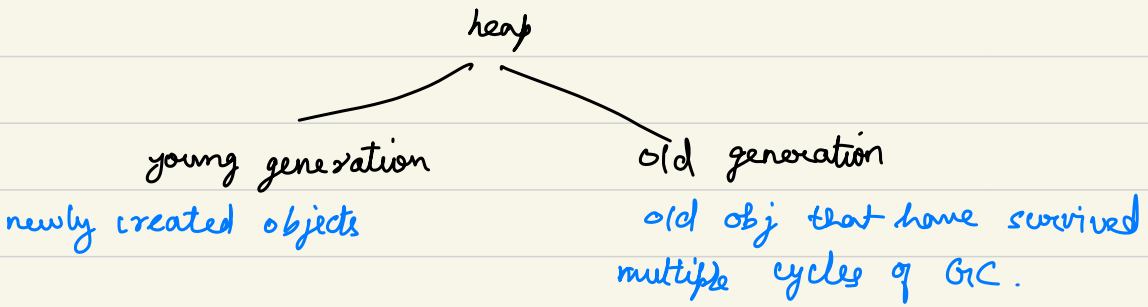 heap
young generation
old generation
newly created objects
old obj that have survived
multiple cycles of GC.